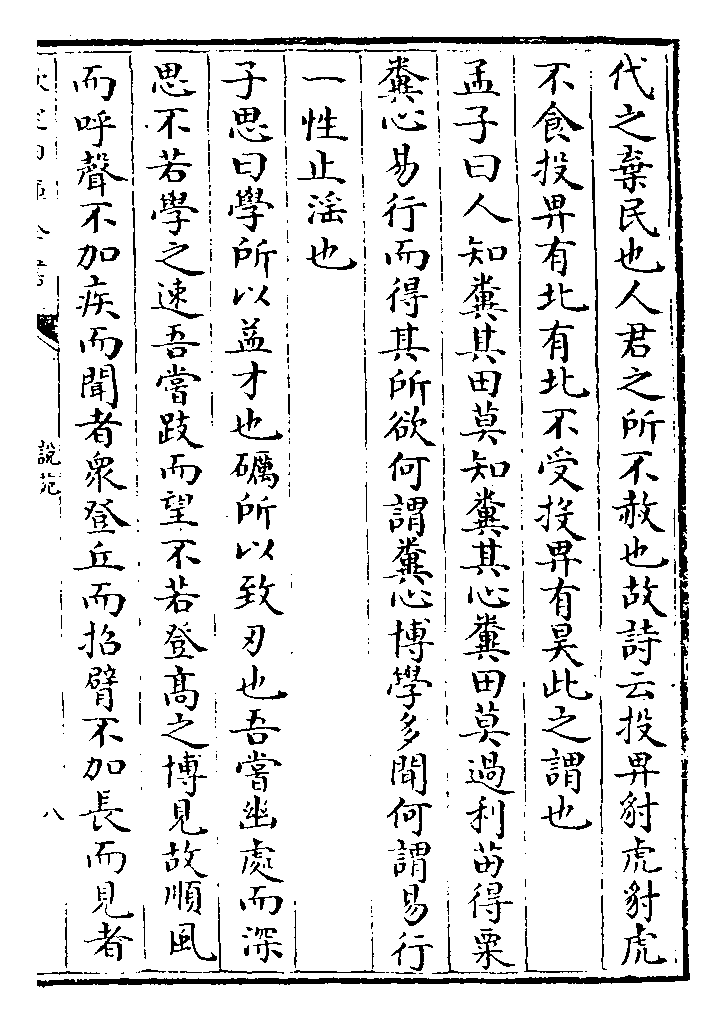 代之棄民也人君之所不赦也故詩云投畀豺虎豺虎
不食投畀有北有北不受投畀有昊此之謂也
孟子曰人知糞其田莫知糞其心糞田莫過利苗得粟
糞心易行而得其所欲何謂糞心博學多聞何謂易行
一性止滛也
子思曰學所以益才也礪所以致刃也吾嘗幽處而深
思不若學之速吾嘗跂而望不若登髙之博見故順風
而呼聲不加疾而聞者衆登丘而招臂不加長而見者
說苑
八